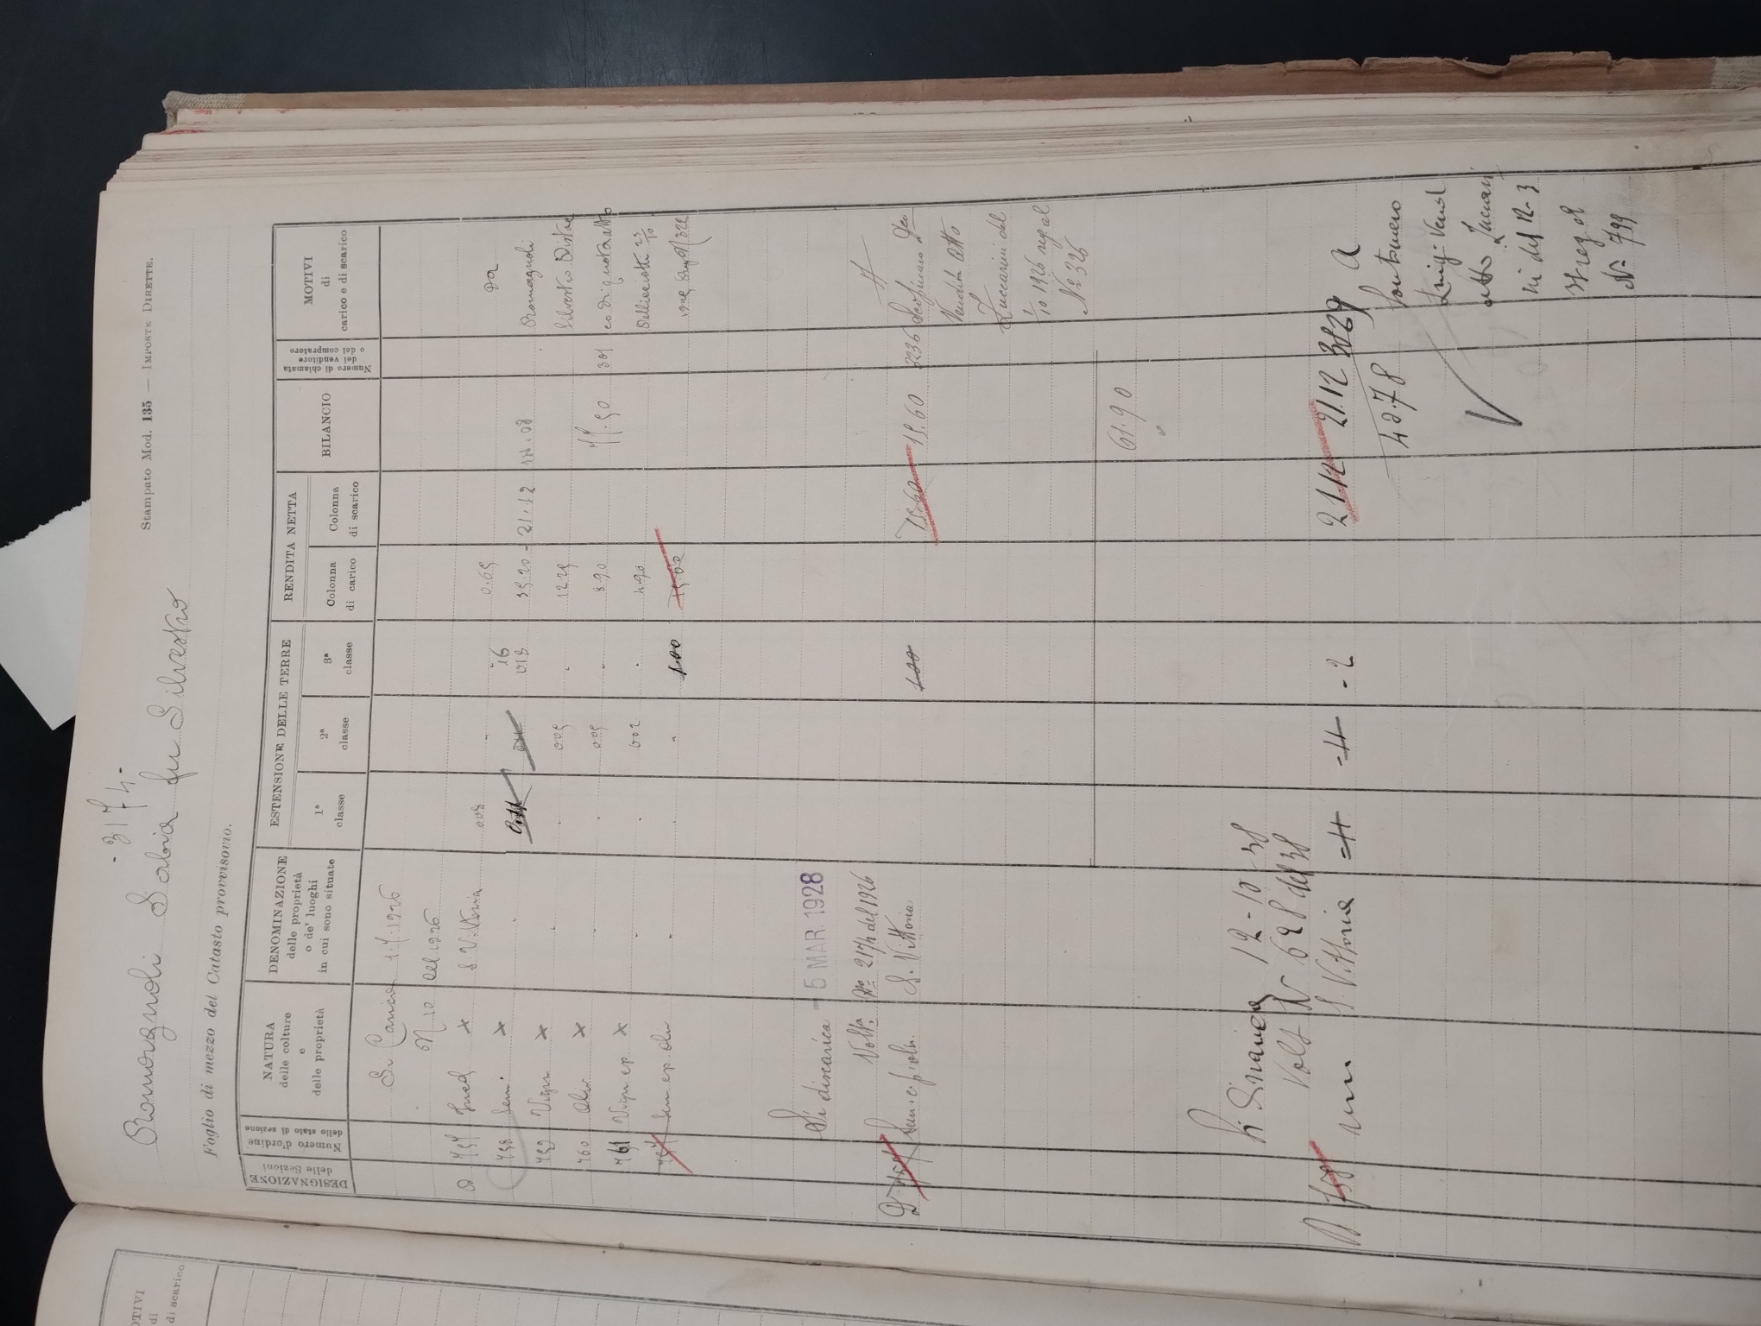 MOTIVI
di
di scarico
-3174-
Romagnoli Sabia fu Silvestro
Stampato Mod. 135 — IMPOSTE DIRETTE.
Foglio di mezzo del Catasto provvisorio.
DESIGNAZIONE delle Sezioni
Numero d'ordine dello stato di sezione
NATURA
delle colture
e
delle proprietà
DENOMINAZIONE
delle proprietà
o de' luoghi
in cui sono situate
ESTENSIONE DELLE TERRE
1ª classe
2ª classe
3ª classe
RENDITA NETTA
Colonna di carico
Colonna di scarico
BILANCIO
Numero di chiamata del venditore o del compratore
MOTIVI
di
carico e di scarico
Si Carica 1.7.1926
N 10 del 1926
D 757 × S. Vittoria 008 0.65 Da
758 Sem. × 0.11 16 018 35.20 - 21.12 Romagnoli
759 Vign × 005 12.25 Silvestro
760 Oliv × 005 8.90 77.50
761 Vign ep. × 002 4.90
757 Sem ep. oliv 1.00 15.60
Si discarica - 5 MAR. 1928
Volta No 2174 del 1926
D 757 Sem. e p. oliv. S. Vittoria 1.00 15.60 15.60 3236
Vendita Atto
Zuccarini del
1/10 1926 reg. al
No 326
61.90
12-10-38
Volt N 628 del 38
D 758 sem S. Vittoria = 11 = 11 - 2 21.12 21.12 3829 a
40.78
Luigi Vend
atto Zuccari
ni del 12-3
reg al
No 799